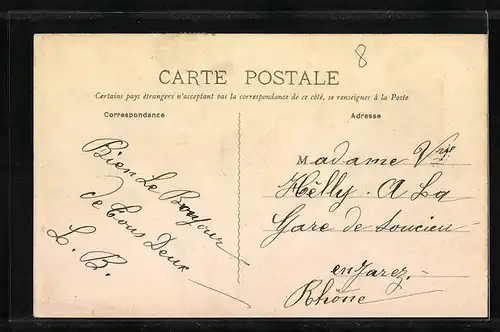 8
CARTE POSTALE
Certains pays étrangers n'acceptant pas la correspondance de ce côté, se renseigner à la Poste
Correspondance
Adresse
Bien Le Bonjour
de tous Deux
L. B.
Madame Vve
Hélly. A La
Gare de Soucieu
en Jarez.
Rhône